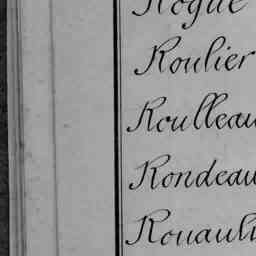 Rogue
Roulier
Roulleau
Rondeau
Rouault